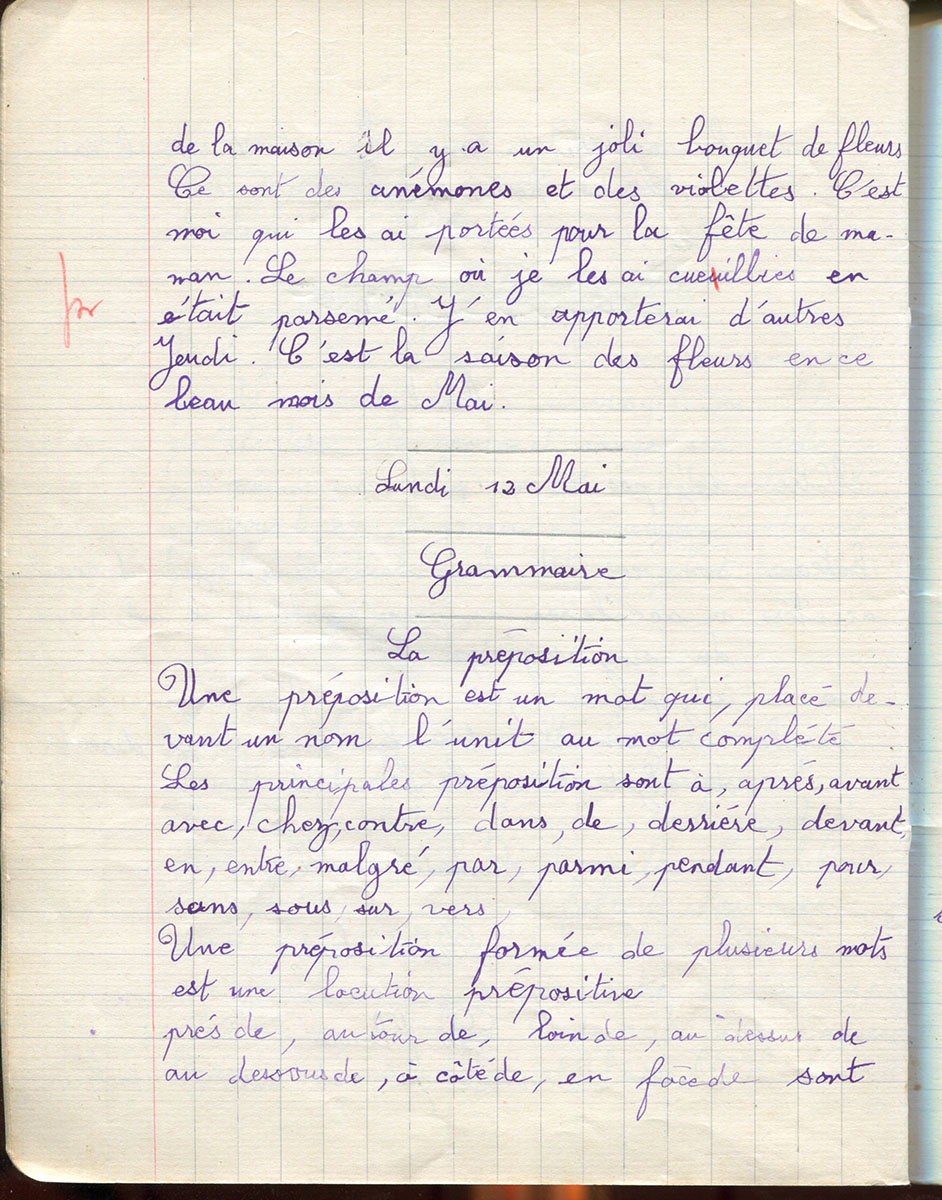 de la maison il y a un joli bouquet de fleurs
Ce sont des anémones et des violettes. C'est
moi qui les ai portées pour la fête de ma-
man. Le champ où je les ai cueillies en
était parsemé. J'en apporterai d'autres
Jeudi. C'est la saison des fleurs en ce
beau mois de Mai.
Lundi 12 Mai
Grammaire
La préposition
Une préposition est un mot qui, placé de-
vant un nom l'unit au mot complété
Les principales préposition sont à, aprés, avant
avec, chez, contre, dans, de, derriére, devant,
en, entre, malgré, par, parmi, pendant, pour,
sans, sous, sur, vers,
Une préposition formée de plusieurs mots
est une locution prépositive
prés de, autour de, loin de, au dessus de
au dessous de, à côté de, en face de sont